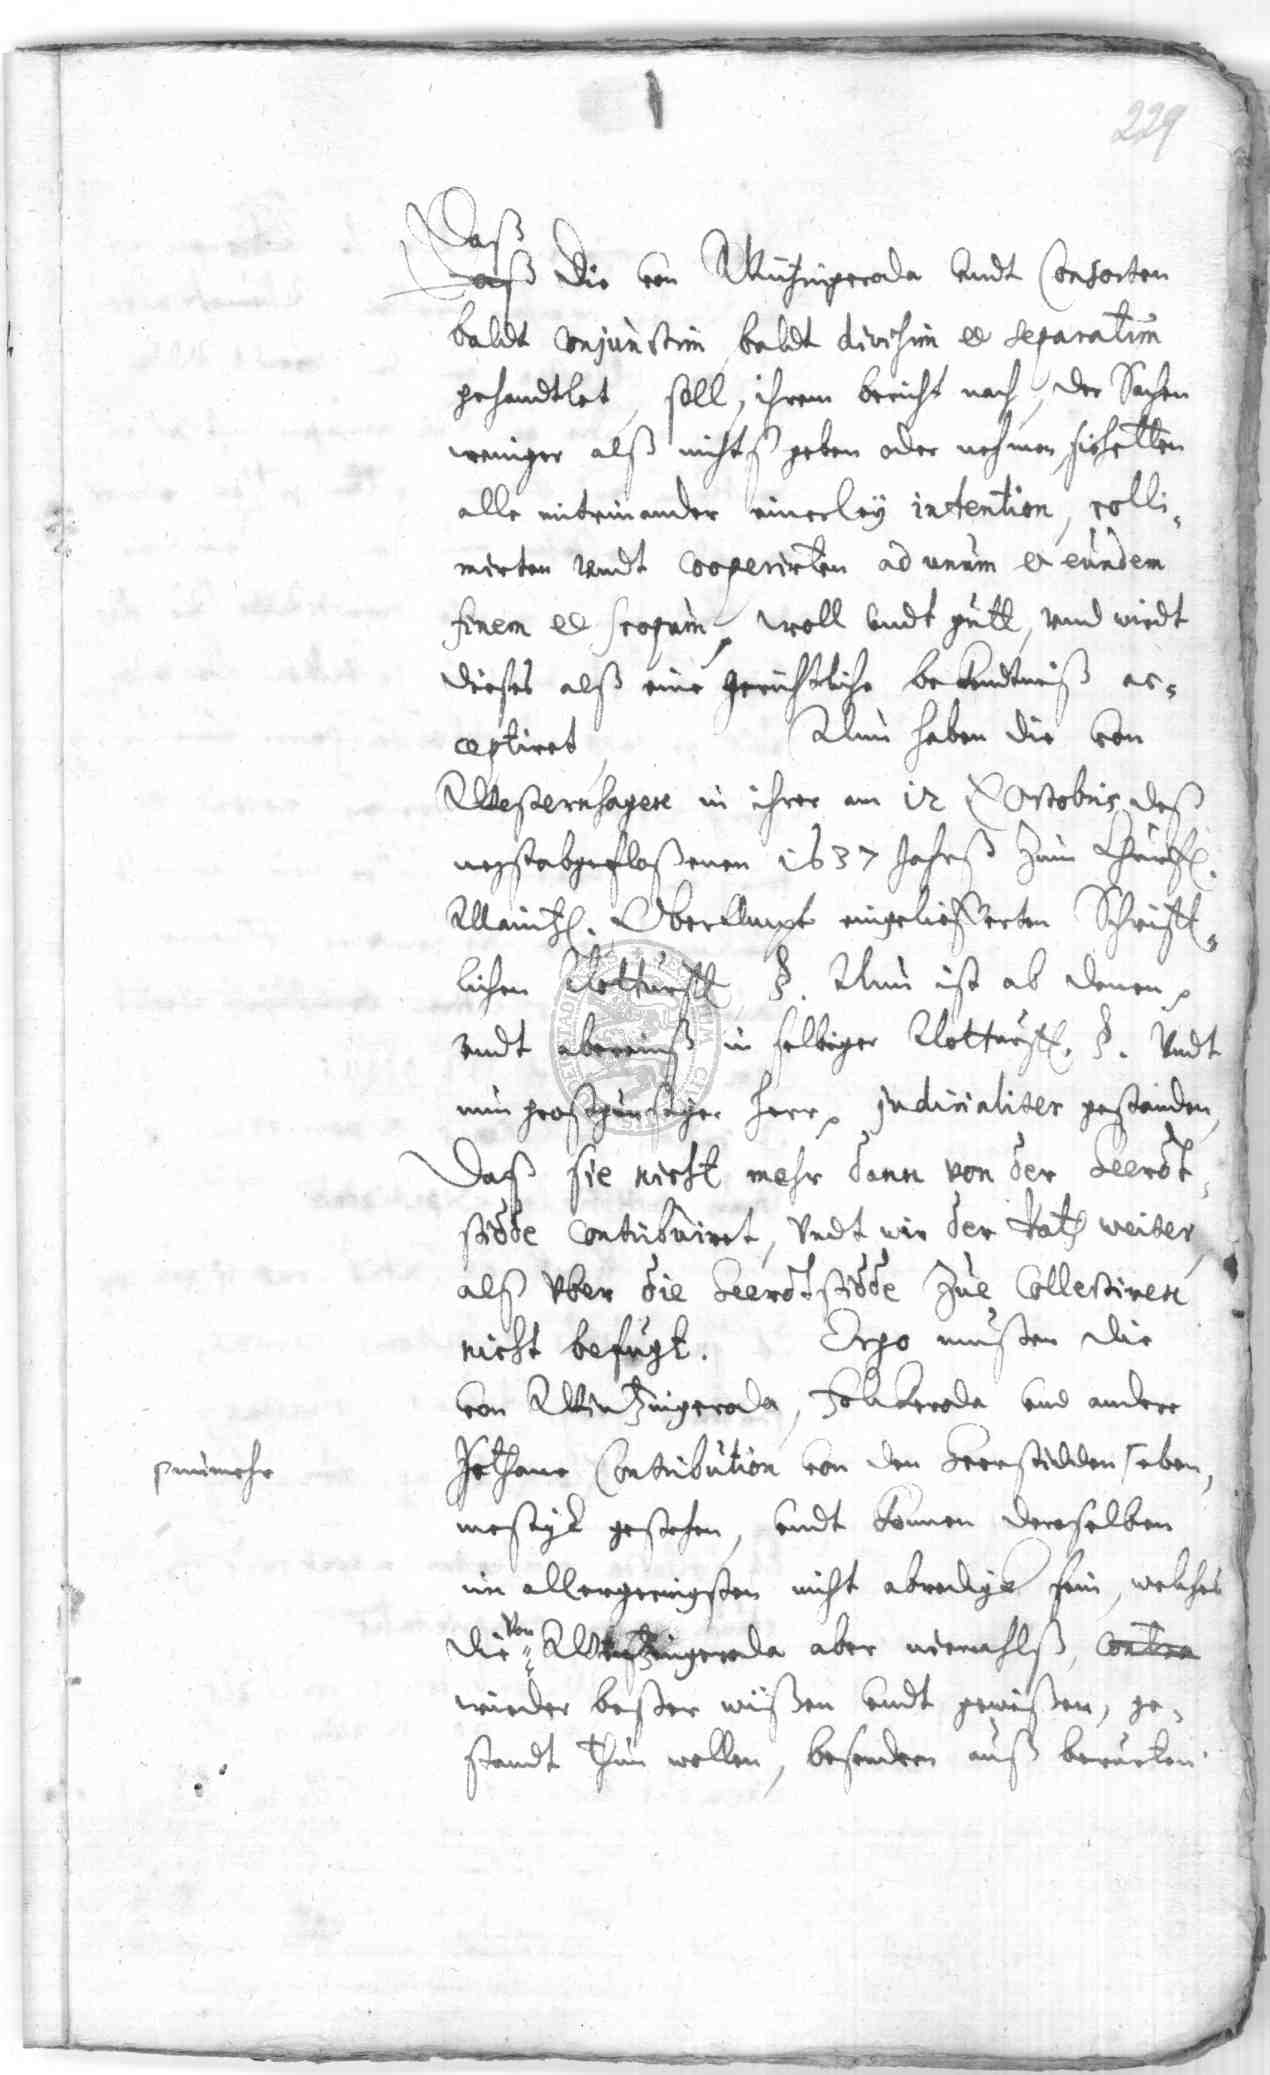 229
Daß
Daß die von Wintzingeroda undt Consorten
baldt conjunctim baldt divisim et separatim
gehandtlet, soll, ihrem bericht nach, der Sachen
weniger alß nichtß geben oder nehmen, sie hetten
alle miteinander einerley intention, colli-
mirten undt cooperirten ad unum et eundem
finem et scopum, woll undt gutt, und wirdt
dieses alß eine gerichtliche bekendtniß ac-
ceptiret, Nun haben die von
Westernhagen in ihrer am 12 Octobris deß
negstabgefloßenen 1637 Jahrß zum Churfl.
Maintzl. OberAmpt eingelieferten Schrifft-
lichen Notturfft §. Nun ist ab denen,
undt abereinß in selbiger Notturfft. §. Undt
nun großgünstiger Herr, judicialiter gestanden,
Daß sie nicht mehr dann von der Leerdt-
stidde contribuiret, Undt wir der Rath weiter,
alß vber die Leerdtstidde zue Collectiren
nicht befugt. Ergo mußen die
von Wintzingeroda, Bodenroda und andere
nunmehr
sothane Contribution von den Leerstidden eben-
meßigk gestehen, undt können deroselben
im allergeringsten nicht abredigk sein, welches
die von Wintzingeroda aber niemahlß, contra
wieder beßer wißen undt gewißen, ge-
standt thun wollen, besondern auß berürten